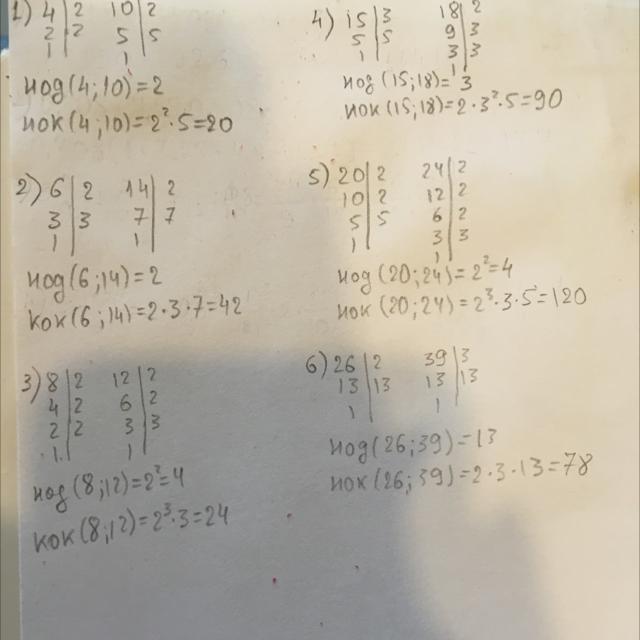 1) 4 | 2 10 | 2
2 | 2 5 | 5
1 | 1 |
нод(4;10)=2
нок(4;10)=2²·5=20
2) 6 | 2 14 | 2
3 | 3 7 | 7
1 | 1 |
нод(6;14)=2
кок(6;14)=2·3·7=42
3) 8 | 2 12 | 2
4 | 2 6 | 2
2 | 2 3 | 3
1 | 1 |
нод(8;12)=2²=4
кок(8;12)=2³·3=24
4) 15 | 3 18 | 2
5 | 5 9 | 3
1 | 3 | 3
1 |
нод(15;18)=3
нок(15;18)=2·3²·5=90
5) 20 | 2 24 | 2
10 | 2 12 | 2
5 | 5 6 | 2
1 | 3 | 3
1 |
нод(20;24)=2²=4
нок(20;24)=2³·3·5=120
6) 26 | 2 39 | 3
13 | 13 13 | 13
1 | 1 |
нод(26;39)=13
нок(26;39)=2·3·13=78